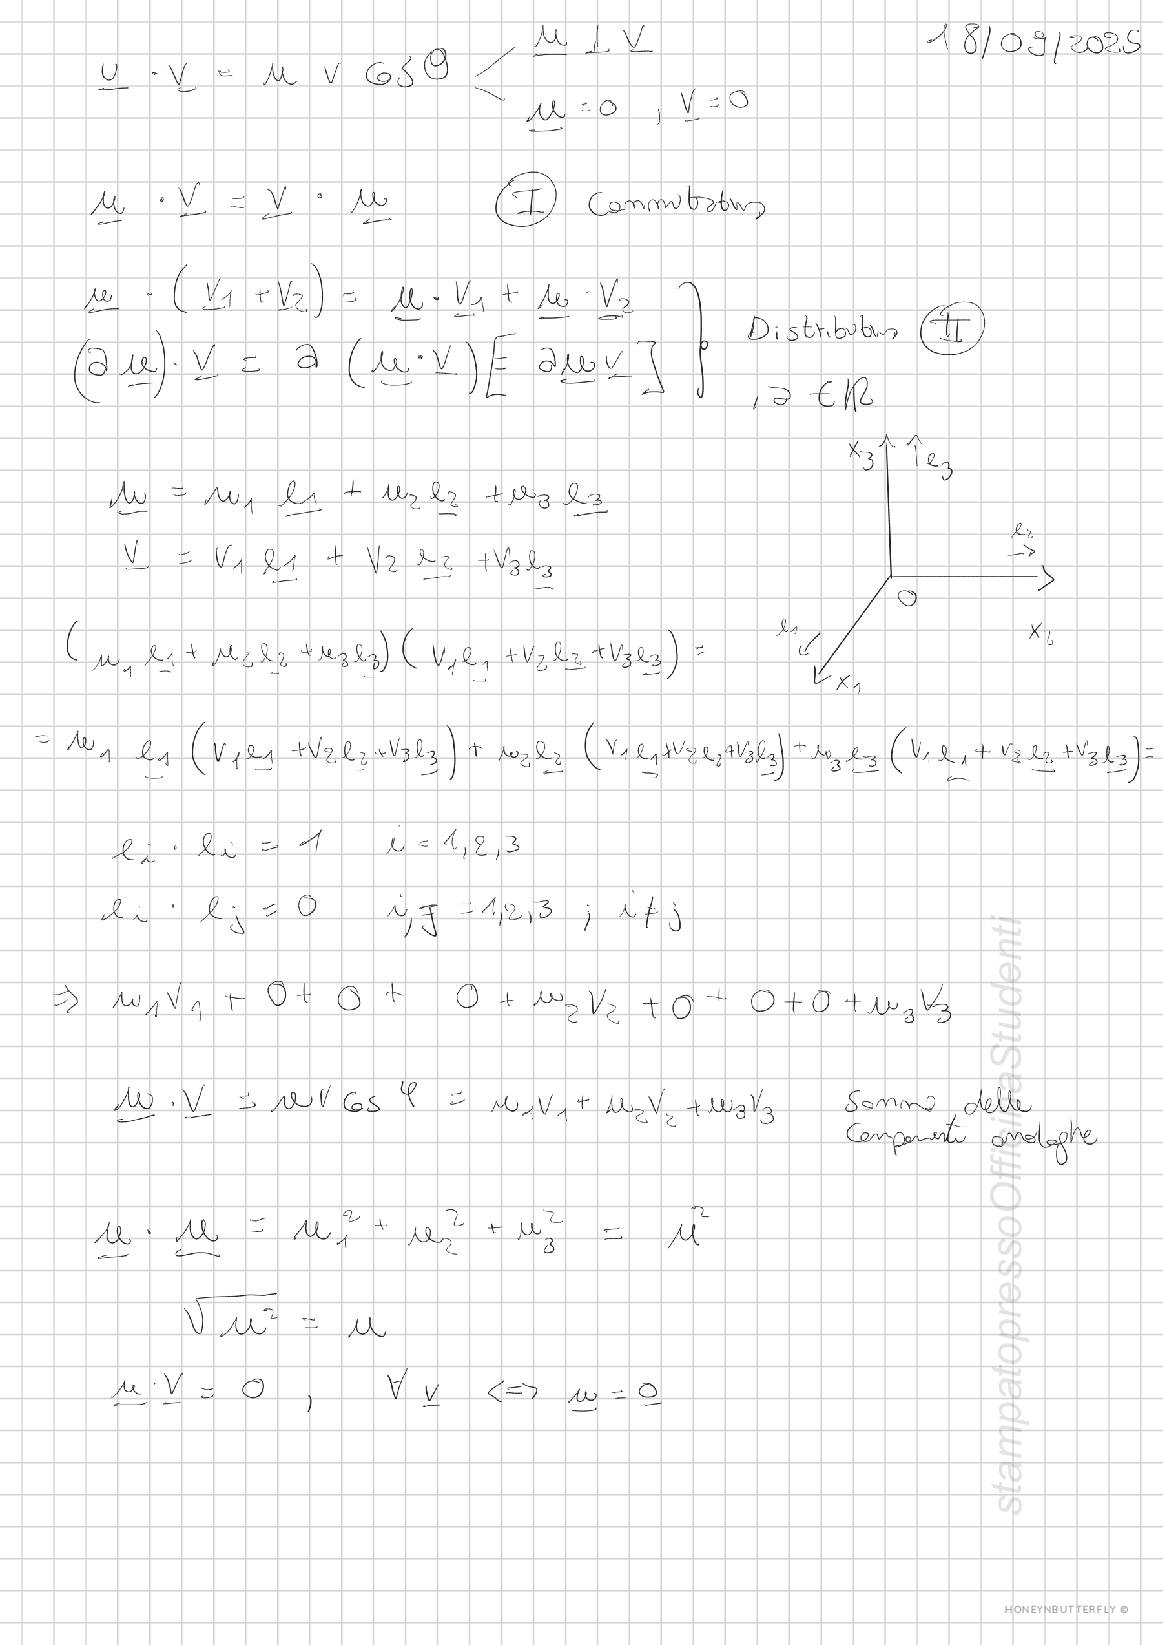 18/09/2025
u · v = u v cos θ < u ⊥ v
u = 0 , v = 0
u · v = v · u Ⓘ Commutativa
u · (v1 + v2) = u · v1 + u · v2
(a u) · v = a (u · v) [= a u v] } Distributiva II
, a ∈ ℝ
x3 e3
u = u1 e1 + u2 e2 + u3 e3
v = v1 e1 + v2 e2 + v3 e3
e2
O
e1
x1
(u1 e1 + u2 e2 + u3 e3) (v1 e1 + v2 e2 + v3 e3) =
= u1 e1 (v1 e1 + v2 e2 + v3 e3) + u2 e2 (v1 e1 + v2 e2 + v3 e3) + u3 e3 (v1 e1 + v2 e2 + v3 e3) =
ei · ei = 1 i = 1,2,3
ei · ej = 0 i,j = 1,2,3 ; i ≠ j
⇒ u1 v1 + 0 + 0 + 0 + u2 v2 + 0 + 0 + 0 + u3 v3
u · v = u v cos φ = u1 v1 + u2 v2 + u3 v3 Somma delle
Componenti analoghe
u · u = u1² + u2² + u3² = u²
√u² = u
u · v = 0 , ∀ v <=> u = 0
stampatopressoOfficinaStudenti
HONEYNBUTTERFLY ©